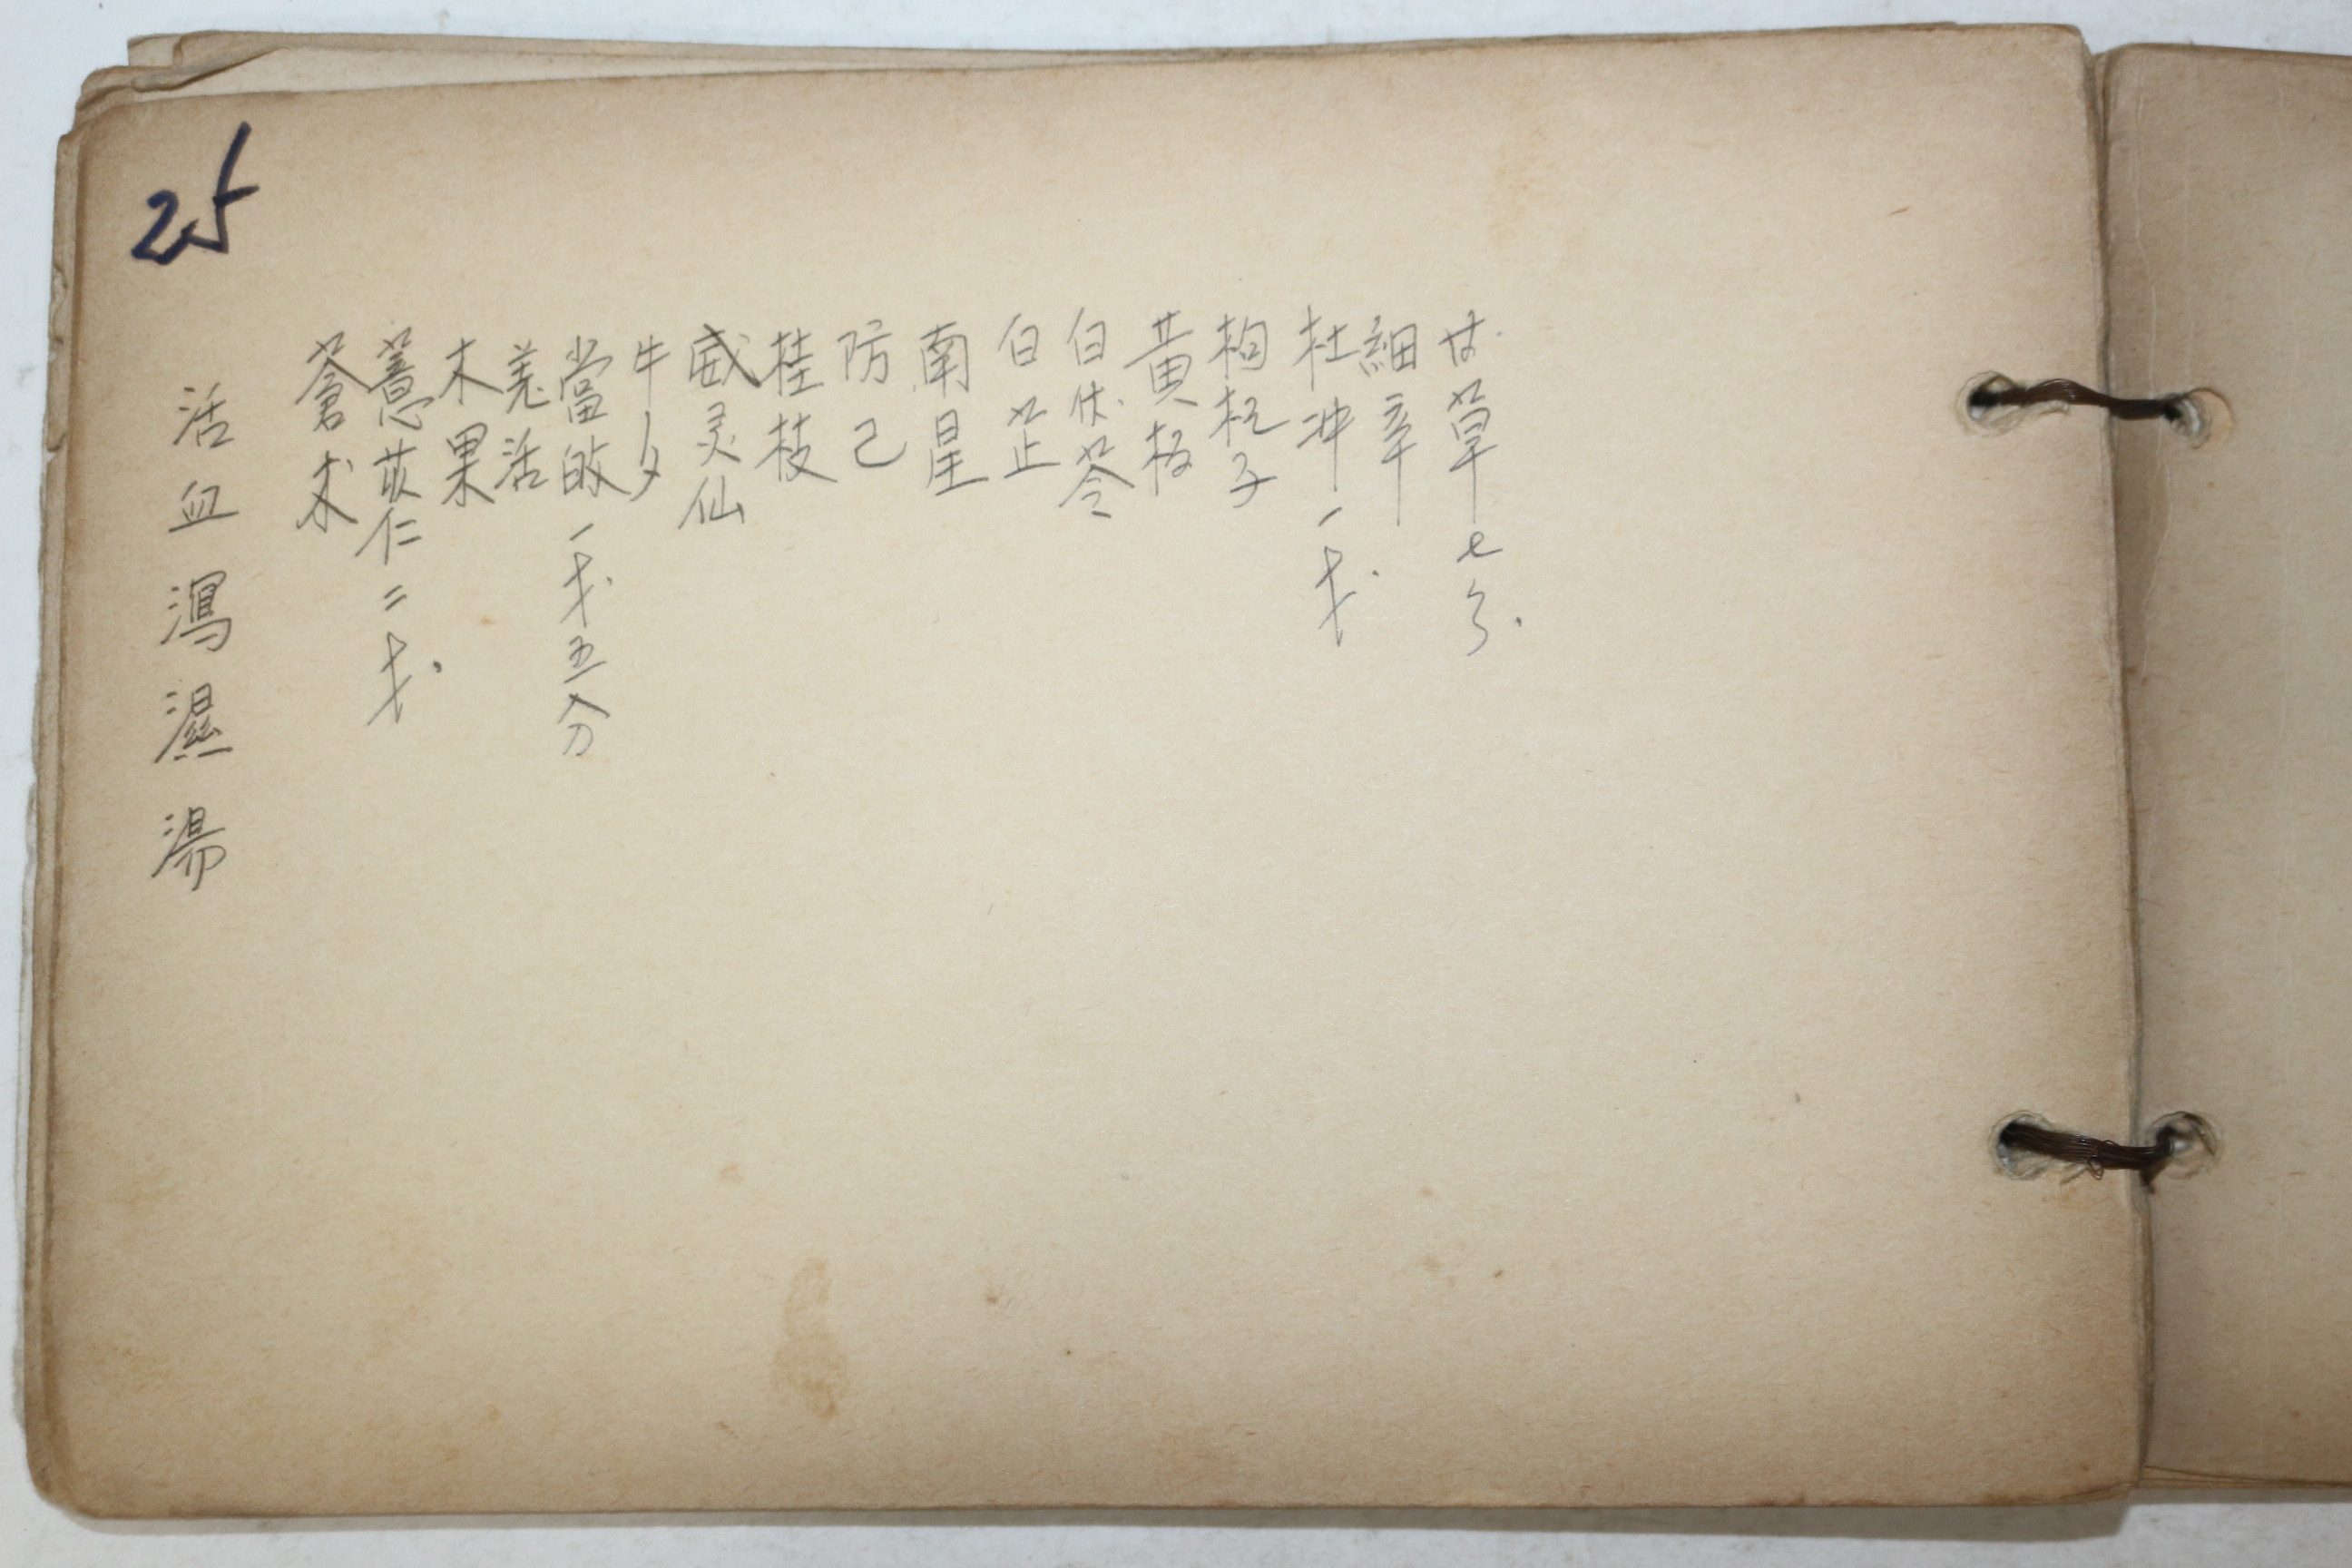 25
活血瀉濕湯
蒼朮
薏苡仁二戈
木果
羌活
當帰一戈五分
牛夕
威灵仙
桂枝
防己
南星
白芷
白茯苓
黃栢
枸杞子
杜冲一戈
細辛
甘草七分